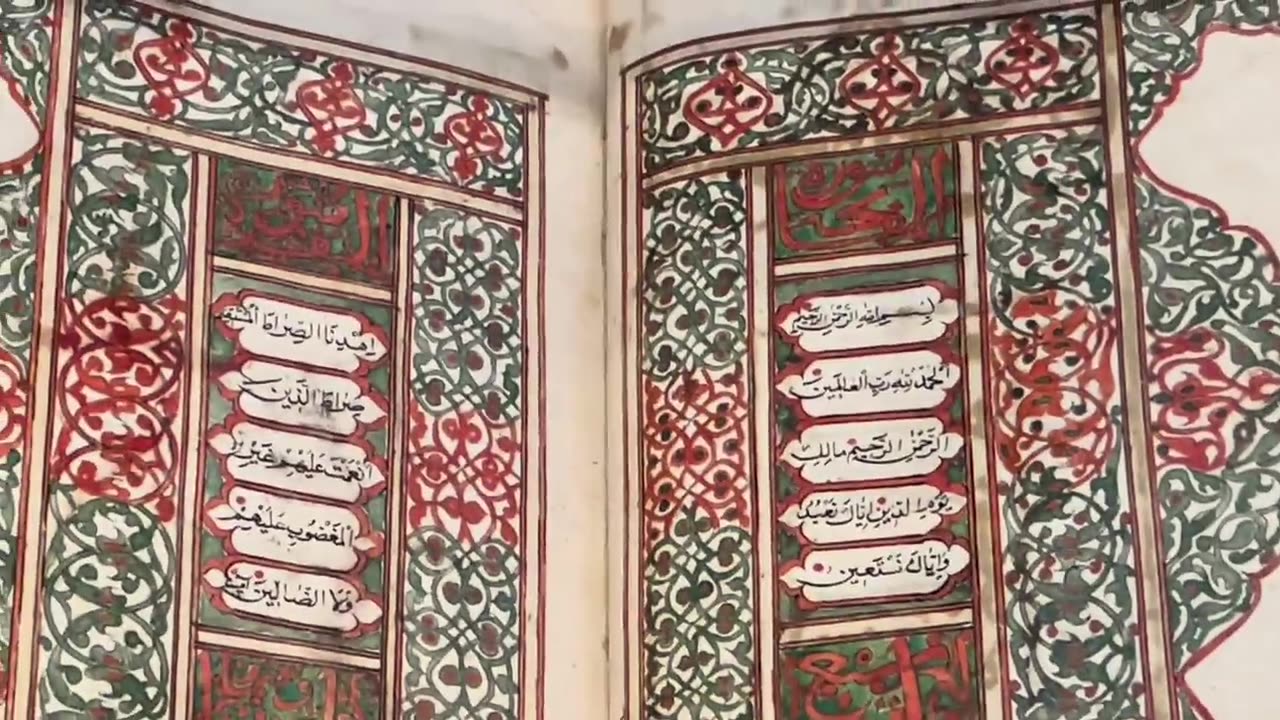 سورة
بِسْمِ اللهِ الرَّحْمٰنِ الرَّحِيمِ
اَلْحَمْدُ لِلّٰهِ رَبِّ الْعَالَمِينَ
الرَّحْمٰنِ الرَّحِيمِ مَالِكِ
يَوْمِ الدِّينِ اِيَّاكَ نَعْبُدُ
وَاِيَّاكَ نَسْتَعِينُ
اِهْدِنَا الصِّرَاطَ الْمُسْتَقِيمَ
صِرَاطَ الَّذِينَ
اَنْعَمْتَ عَلَيْهِمْ غَيْرِ
الْمَغْضُوبِ عَلَيْهِمْ
وَلَا الضَّالِّينَ